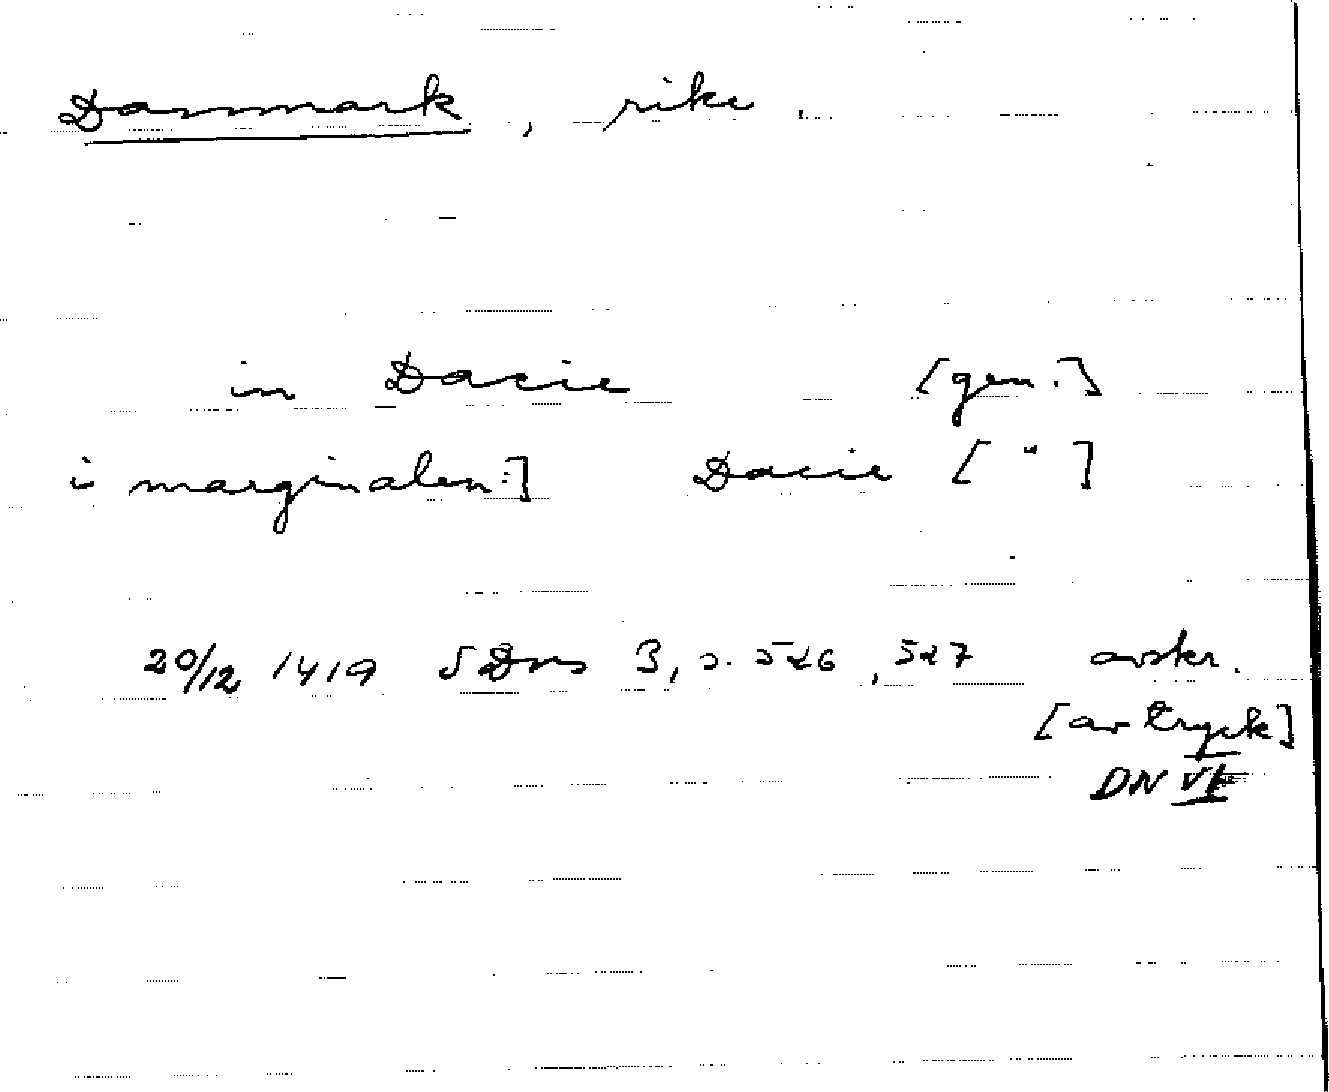 Danmark, rike.
in Dacie [gen.]
i marginalen:] Dacie [ " ]
20/12 1419 SDns 3, s. 526, 527 avskr.
[av tryck]
DN VI